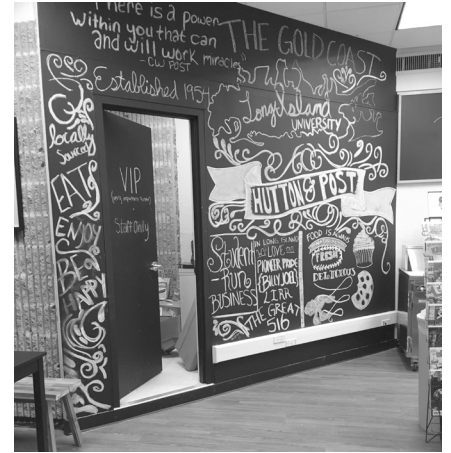 There is a power
within you that can
and will work miracles"
-CW POST
THE GOLD COAST
Established 1954
Long Island
UNIVERSITY
HUTTON & POST
locally
Sourced
EAT
ENJOY
BE
HAPPY
VIP
Staff Only
Student
-run
BUSINESS
IN LONG ISLAND
WE LOVE
PIONEER PRIDE
BILLY JOEL
LIRR
THE GREAT
516
FOOD IS ALWAYS
FRESH
DELICIOUS